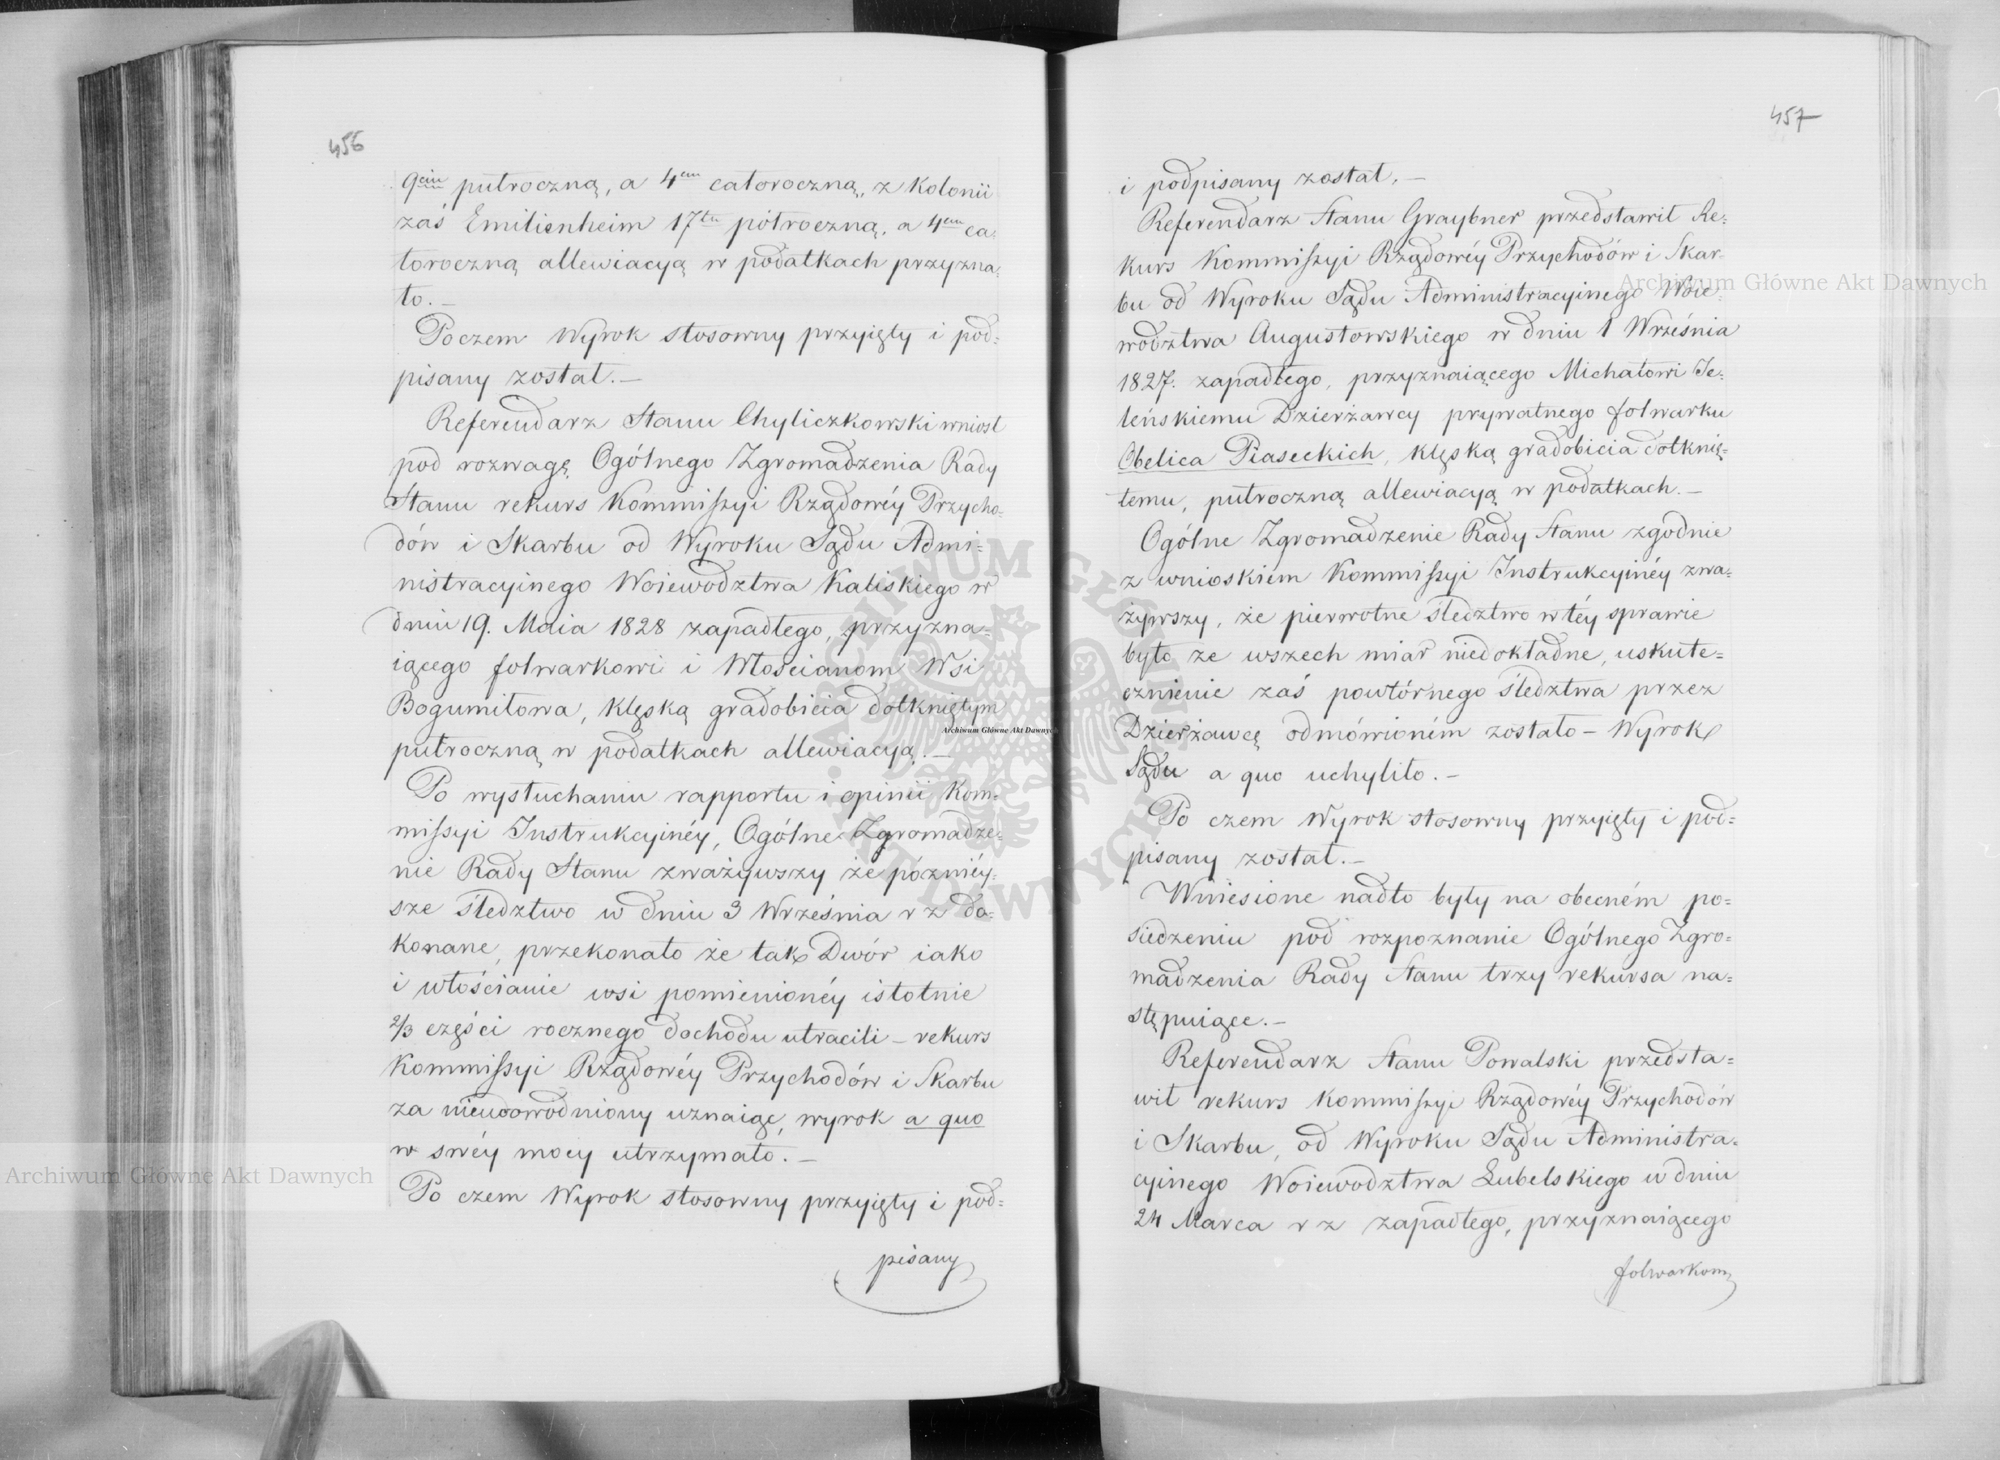 456
9ciu pułroczną, a 4em całoroczną, z Kolonii
zaś Emilienheim 17tu półroczną, a 4em ca-
łoroczną allewiacyą w podatkach przyzna-
ło.—
Poczem Wyrok stosowny przyięty i pod=
pisany został.—
Referendarz Stanu Chyliczkowski wniosł
pod rozwagę Ogólnego Zgromadzenia Rady
Stanu rekurs Kommissyi Rządowéy Przycho-
dów i Skarbu od Wyroku Sądu Admi=
nistracyinego Woiewodztwa Kaliskiego w
dniu 19. Maia 1828 zapadłego, przyzna-
iącego folwarkowi i Włościanom Wsi
Bogumiłowa, klęską gradobicia dotkniętym
pułroczną w podatkach allewiacyą.—
Po wysłuchaniu rapportu i opinii Kom-
missyi Instrukcyinéy, Ogólne Zgromadze-
nie Rady Stanu zważywszy że pózniéy-
sze śledztwo w dniu 3 Września r z do-
konane, przekonało że tak Dwór iako
i włościanie wsi pomienionéy istotnie
2/3 części rocznego dochodu utracili – rekurs
Kommissyi Rządowéy Przychodów i Skarbu
za nieudowodniony uznaiąc, wyrok a quo
w swéy mocy utrzymało.—
Po czem Wyrok stosowny przyięty i pod=
pisany
457
i podpisany został.—
Referendarz Stanu Graybner przedstawił Re-
kurs Kommissyi Rządowéy Przychodów i Skar-
bu od Wyroku Sądu Administracyinego Woie-
wodztwa Augustowskiego w dniu 1 Września
1827. zapadłego, przyznaiącego Michałowi Je-
leńskiemu Dzierżawcy prywatnego folwarku
Obelica Piaseckich, klęską gradobicia dotknię-
temu, pułroczną allewiacyą w podatkach.—
Ogólne Zgromadzenie Rady Stanu zgodnie
z wnioskiem Kommissyi Instrukcyinéy zwa-
żywszy, że pierwotne śledztwo w téy sprawie
było ze wszech miar niedokładne, uskute=
cznienie zaś powtórnego śledztwa przez
Dzierżawcę odmówioném zostało – Wyrok
Sądu a quo uchyliło.—
Po czem Wyrok stosowny przyięty i pod=
pisany został.—
Wniesione nadto były na obecném po=
siedzeniu pod rozpoznanie Ogólnego Zgro=
madzenia Rady Stanu trzy rekursa na=
stępuiące.—
Referendarz Stanu Powalski przedsta=
wił rekurs Kommissyi Rządowéy Przychodów
i Skarbu, od Wyroku Sądu Administra-
cyinego Woiewodztwa Lubelskiego w dniu
24 Marca r z zapadłego, przyznaiącego
folwarkom
Archiwum Główne Akt Dawnych
Archiwum Główne Akt Dawnych
Archiwum Główne Akt Dawnych
ARCHIWUM GŁÓWNE AKT DAWNYCH